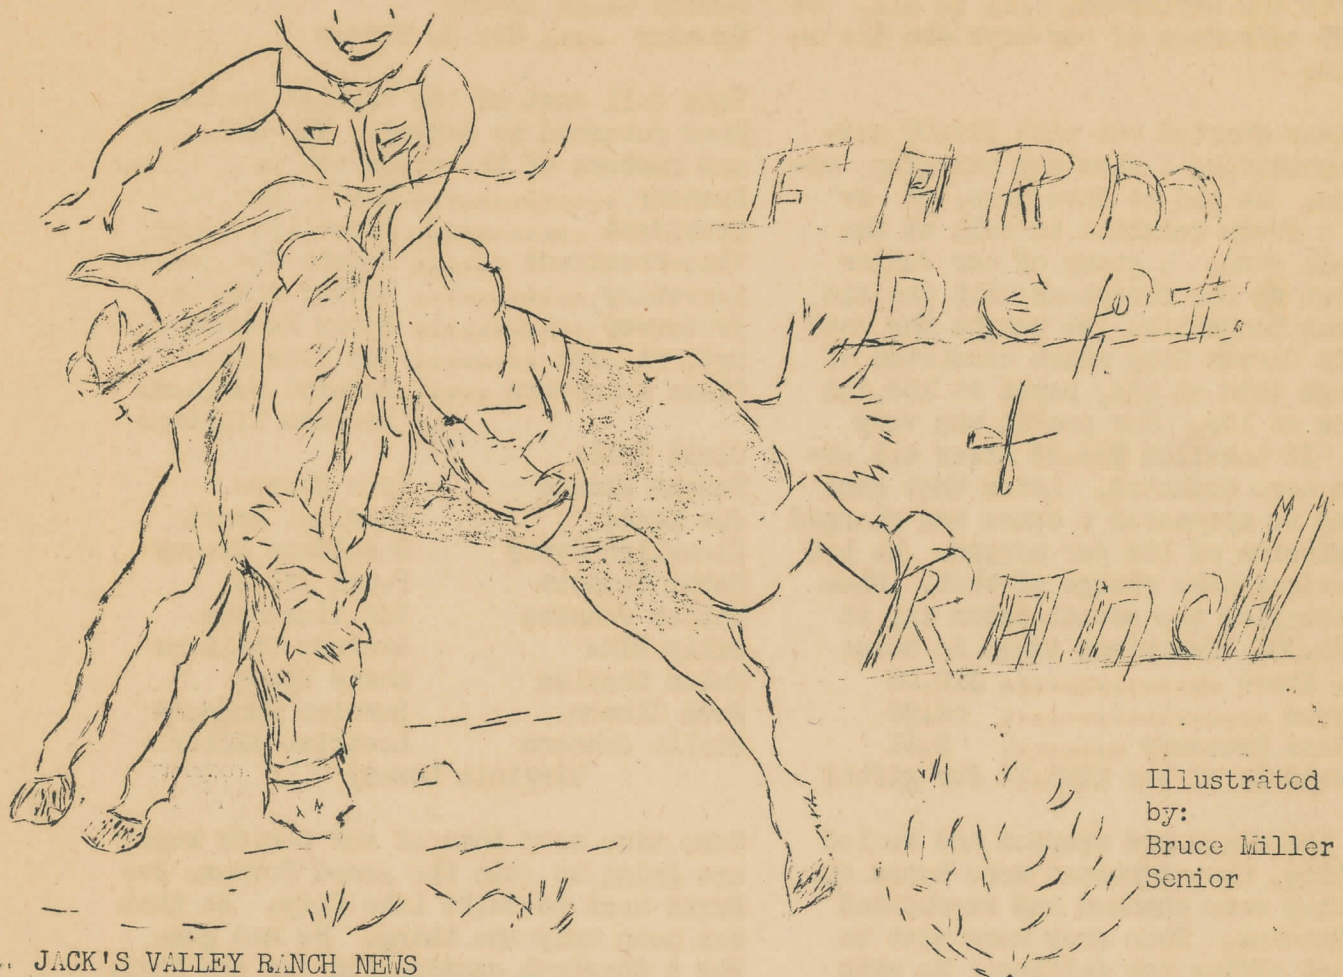 FARm
Dept.
&
RAncH
Illustrated
by:
Bruce Miller
Senior
JACK'S VALLEY RANCH NEWS